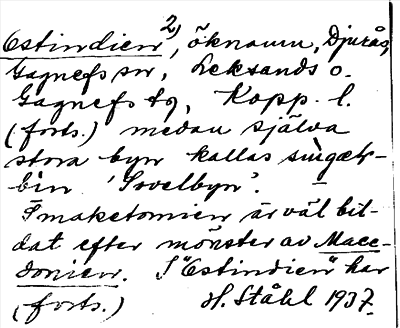 Ostindien 2), öknamn, Djurås,
Gagnefs sn, Leksands o.
Gagnefs tg, Kopp. l.
(forts.) medan själva
stora byn kallas
bin 'Sovelbyn'.
Smaketomien är väl bil-
dat efter mönster av Mace-
donien. I "Ostindien" har
(forts.) H. Ståhl 1937.